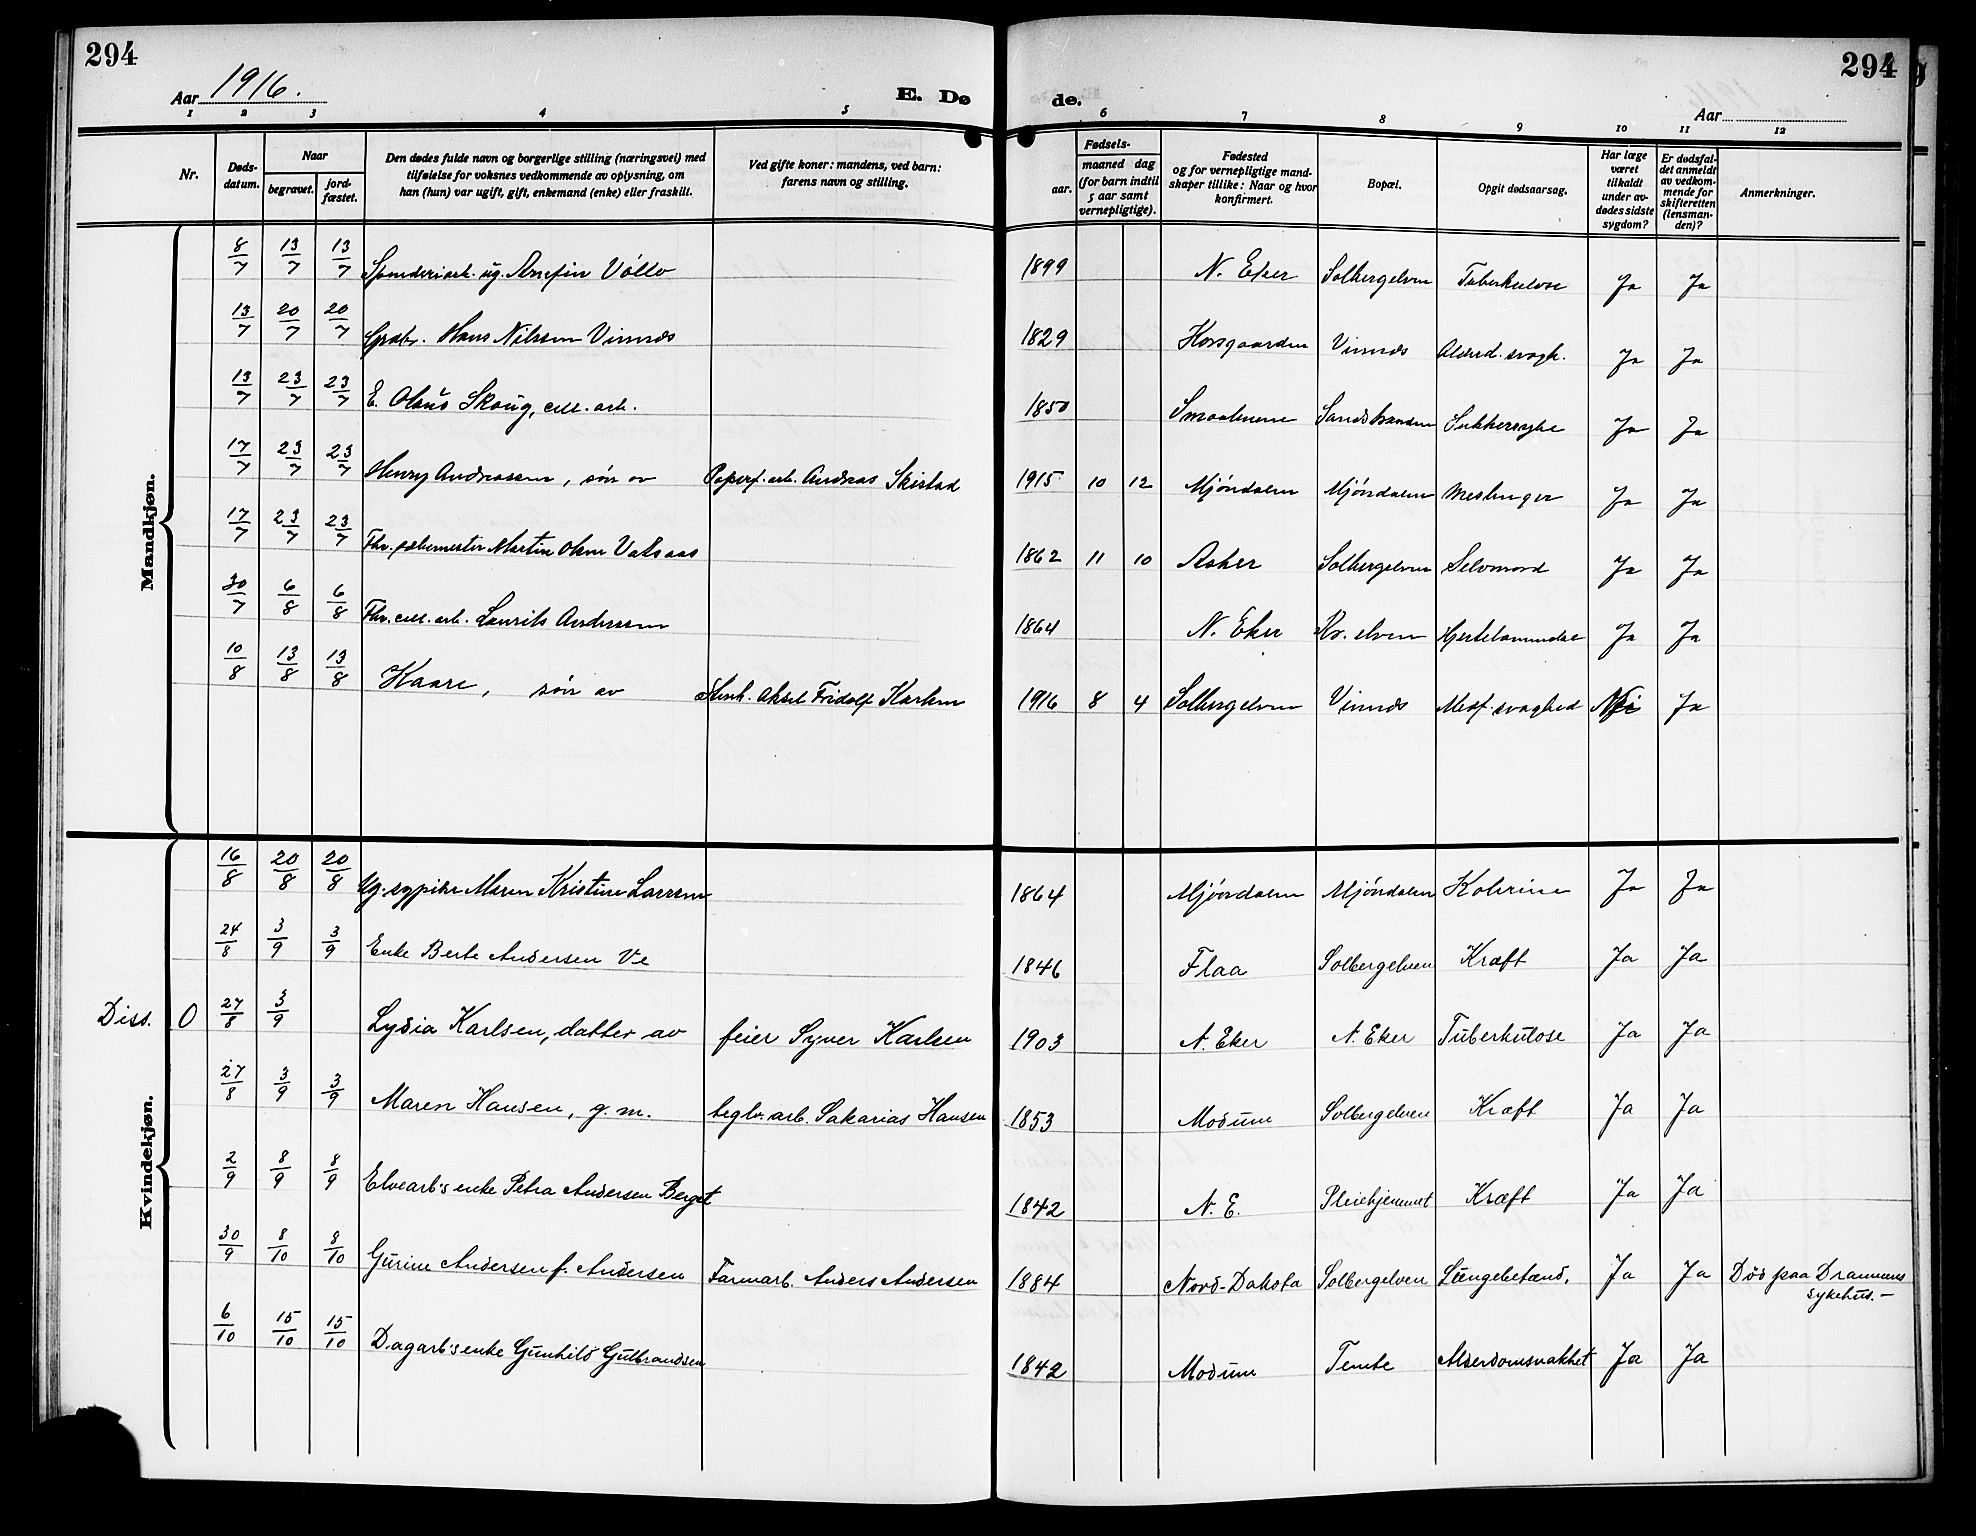 294
294
Aar 1916.
E. Dø
de.
Aar
1 2 3 4 5 6 7 8 9 10 11 12
Nr.
Døds-datum.
Naar
begravet.
jord-fæstet.
Den dødes fulde navn og borgerlige stilling (næringsvei) med
tilføielse for voksnes vedkommende av oplysning, om
han (hun) var ugift, gift, enkemand (enke) eller fraskilt.
Ved gifte koner: mandens, ved barn:
farens navn og stilling.
Fødsels-
aar.
maaned dag
(for barn indtil
5 aar samt
vernepligtige).
Fødested
og for vernepligtige mand-
skaper tillike: Naar og hvor
konfirmert.
Bopæl.
Opgit dødsaarsag.
Har læge
været
tilkaldt
under av-
dødes sidste
sygdom?
Er dødsfal-
det anmeldt
av vedkom-
mende for
skifteretten
(lensman-
den)?
Anmerkninger.
Mandkjøn.
8/7 13/7 13/7 ug. Arnfin 1899 N. Eker Solbergelven Tuberkulose Ja Ja
13/7 20/7 20/7 Hans Nilssen Vinnæs 1829 Korsgaarden Vinnæs Alderd. svagh. Ja Ja
13/7 23/7 23/7 E. Olaus Skaug, cell. arb. 1850 Smaalenene Sandstranden Sukkersyke Ja Ja
17/7 23/7 23/7 Henry Andreassen, søn av Papirf. arb. Andreas Skistad 1915 10 12 Mjöndalen Mjöndalen Meslinger Ja Ja
17/7 23/7 23/7 Fhv. Martin Olsen 1862 11 10 Asker Solbergelven Selvmord Ja Ja
30/7 6/8 6/8 Fhv. cell. arb. Laurits Andersen 1864 N. Eker Kr. elven Hjertelammelse Ja Ja
10/8 13/8 13/8 Kaare, søn av Aksel Fridolf Karlsen 1916 8 4 Solbergelven Vinnæs Medf. svaghed Nei Ja
Kvindekjøn.
16/8 20/8 20/8 Ug. sypike Maren Kristine Larssen 1864 Mjöndalen Mjöndalen Kolerine Ja Ja
24/8 3/9 3/9 Enke Berte Andersen Ve 1846 Flaa Solbergelven Kræft Ja Ja
Diss. 0 27/8 3/9 Lydia Karlsen, datter av feier Syver Karlsen 1903 N. Eker N. Eker Tuberkulose Ja Ja
27/8 3/9 3/9 Maren Hansen, g. m. arb. Sakarias Hansen 1853 Modum Solbergelven Kræft Ja Ja
2/9 8/9 8/9 Elvearb's enke Petra Andersen Berget 1842 N. E. Pleiehjemmet Kræft Ja Ja
30/9 8/10 8/10 Gurine Andersen f. Andersen Farmarb. Anders Andersen 1884 Nord-Dakota Solbergelven Lungebetænd. Ja Ja Död paa Drammens
sykehus.—
6/10 15/10 15/10 Dagarb's enke Gunhild Gulbrandsen 1842 Modum Temte Alderdomsvakhet Ja Ja